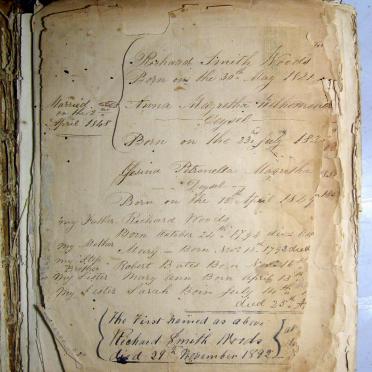 Richard Smith Woods
Born on the 30th May 1821
Married
on the 2nd
April 1848
Anna Magretha
Geysel
Born on the 23rd July
Petronella Magretha
Geysel
Born on the 18th April 1849
My Father Richard Woods
Born October 24th 1794 died
My Mother Mary - Born Novr 15th 1792 died
My Step Brother Robert Bates Born
My Sister Mary Ann Born April 13th
My Sister Sarah Born July 14th
died 25th
The First named as above
Richard Smith Woods
died 29th November 1892